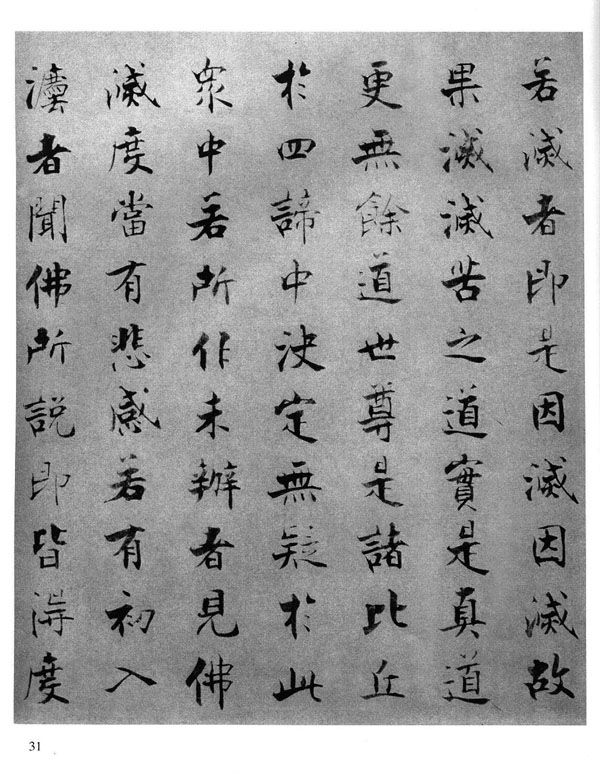 若滅者即是因滅因滅故
果滅滅苦之道實是真道
更無餘道世尊是諸比丘
於四諦中決定無疑於此
眾中若所作未辦者見佛
滅度當有悲感若有初入
灋者聞佛所說即皆得度
31